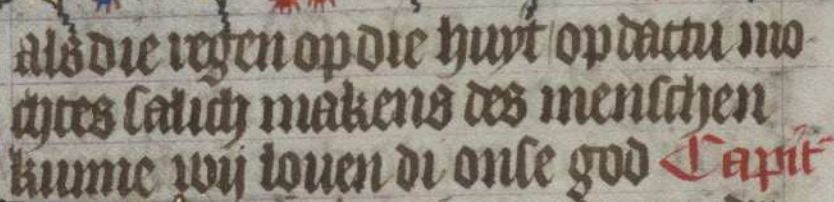 als die regen op die huyt op dattu mo
chtes salich makens des menschen
kunne wij louen di onse god Capit